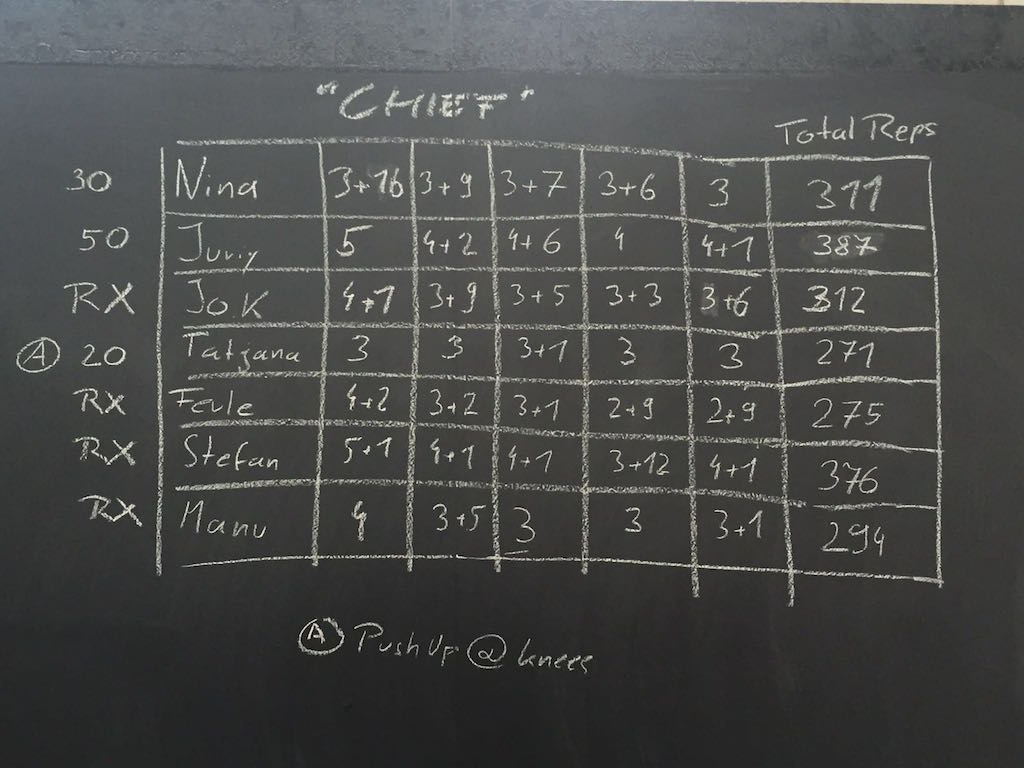 "CHIEF"
Total Reps
30 Nina 3+16 3+9 3+7 3+6 3 311
50 Juriy 5 4+2 4+6 4 4+1 387
RX Jo.K 4+1 3+9 3+5 3+3 3+6 312
A 20 Tatjana 3 3 3+1 3 3 271
RX Feule 4+2 3+2 3+1 2+9 2+9 275
RX Stefan 5+1 4+1 4+1 3+12 4+1 376
RX Manu 4 3+5 3 3 3+1 294
A Push Up @ knees